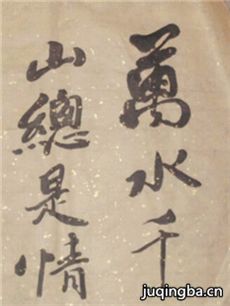 萬水千
山總是情
juqingba.cn